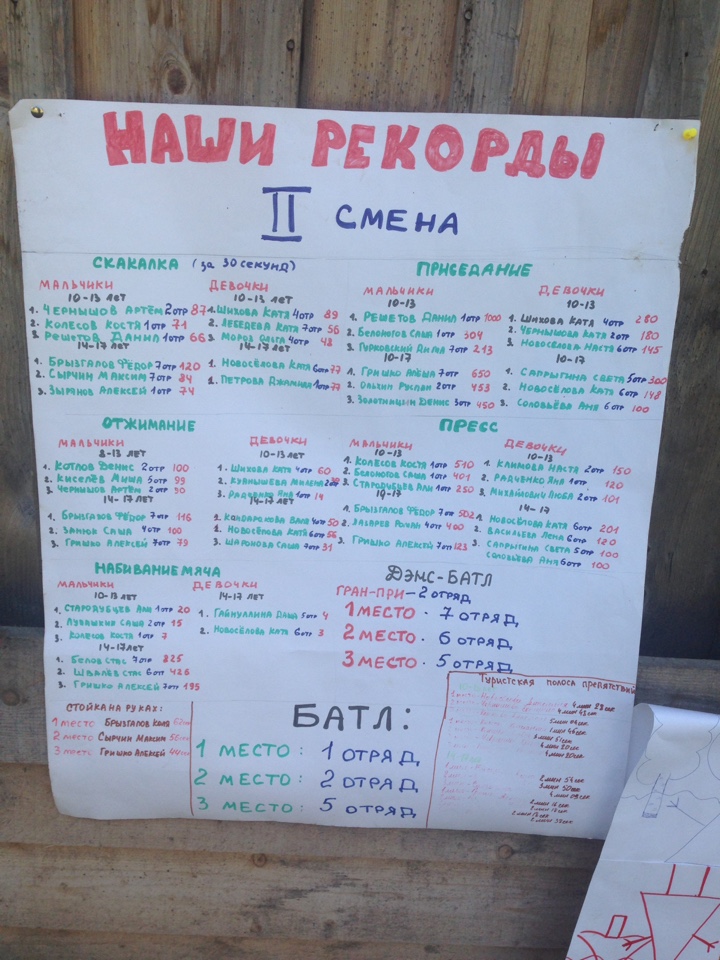 НАШИ РЕКОРДЫ
II СМЕНА
СКАКАЛКА (за 30 секунд)
МАЛЬЧИКИ
10-13 ЛЕТ
1. ЧЕРНЫШОВ АРТЁМ 2отр 87
2. КОЛЕСОВ КОСТЯ 1отр 71
3. РЕШЕТОВ ДАНИЛ 1отр 66
14-17 ЛЕТ
1. БРЫЗГАЛОВ ФЁДОР 7отр 120
2. СЫРЧИН МАКСИМ 7отр 84
3. ЗЫРЯНОВ АЛЕКСЕЙ 1отр 74
ДЕВОЧКИ
10-13 ЛЕТ
1. ШИХОВА КАТЯ 4отр 89
2. ЛЕБЕДЕВА КАТЯ 7отр 56
3. МОРОЗ ОЛЬГА 4отр 48
14-17 ЛЕТ
1. НОВОСЁЛОВА КАТЯ 6отр 77
1. ПЕТРОВА ДЖАМИЛА 1отр 77
ПРИСЕДАНИЕ
МАЛЬЧИКИ
10-13
1. РЕШЕТОВ ДАНИЛ 1отр 1000
2. БЕЛОНОГОВ САША 1отр 304
3. 7отр 213
10-17
1. ГРИШКО АЛЁША 7отр 650
2. ОЛЬХИН РУСЛАН 2отр 453
3. ЗОЛОТНИЦЫН ДЕНИС 3отр 450
ДЕВОЧКИ
10-13
1. ШИХОВА КАТЯ 4отр 280
2. ЧЕРНЫШОВА КАТЯ 2отр 180
3. НОВОСЁЛОВА НАСТЯ 6отр 145
10-17
1. САПРЫГИНА СВЕТА 5отр 300
2. НОВОСЁЛОВА КАТЯ 6отр 148
3. СОЛОВЬЁВА АНЯ 6отр 100
ОТЖИМАНИЕ
МАЛЬЧИКИ
8-13 ЛЕТ
1. КОТЛОВ ДЕНИС 2отр 100
2. КИСЕЛЁВ МИША 5отр 99
3. ЧЕРНЫШОВ АРТЁМ 2отр 90
14-17 ЛЕТ
1. БРЫЗГАЛОВ ФЁДОР 7отр 116
2. САША 4отр 100
3. ГРИШКО АЛЕКСЕЙ 7отр 79
ДЕВОЧКИ
10-13 ЛЕТ
1. ШИХОВА КАТЯ 4отр 60
2. КУАНЫШЕВА МИЛЕНА
3. РАДЧЕНКО ЯНА 1отр 14
14-17 ЛЕТ
1. КАНДАРАКОВА ВАЛЯ 4отр 50
1. НОВОСЁЛОВА КАТЯ 6отр 56
3. ШАРОНОВА САША 7отр 31
ПРЕСС
МАЛЬЧИКИ
10-13
1. КОЛЕСОВ КОСТЯ 1отр 510
2. БЕЛОНОГОВ САША 1отр 401
3. СТАРОДУБЦЕВ АЛИ 1отр 250
14-17
1. БРЫЗГАЛОВ ФЁДОР 7отр 502
2. ЗАВАРЕВ РОМАН 4отр 400
3. ГРИШКО АЛЕКСЕЙ 7отр 125
ДЕВОЧКИ
10-13
1. КЛИМОВА НАСТЯ 2отр 150
2. РАДЧЕНКО ЯНА 1отр 120
3. МИХАЙЛОВИЧ ЛЮБА 2отр 101
14-17
1. НОВОСЁЛОВА КАТЯ 6отр 201
2. ВАСИЛЬЕВА ЛЕНА 6отр 120
3. САПРЫГИНА СВЕТА 5отр 100
СОЛОВЬЁВА АНЯ 6отр 100
НАБИВАНИЕ МЯЧА
МАЛЬЧИКИ
10-13 ЛЕТ
1. СТАРОДУБЦЕВ АЛИ 1отр 20
2. ЛУВАШКИН САША 2отр 15
3. КОЛЕСОВ КОСТЯ 1отр 7
14-17 ЛЕТ
1. БЕЛОВ СТАС 7отр 825
2. ШВАЛЁВ СТАС 6отр 426
3. ГРИШКО АЛЕКСЕЙ 7отр 195
ДЕВОЧКИ
14-17 ЛЕТ
1. ГАЙНУЛЛИНА ДАША 5отр 4
2. НОВОСЁЛОВА КАТЯ 6отр 3
ДЭНС-БАТЛ
ГРАН-ПРИ - 2 ОТРЯД
1 МЕСТО - 7 ОТРЯД
2 МЕСТО - 6 ОТРЯД
3 МЕСТО - 5 ОТРЯД
СТОЙКА НА РУКАХ:
1 МЕСТО БРЫЗГАЛОВ КОЛЯ
2 МЕСТО СЫРЧИН МАКСИМ
3 МЕСТО ГРИШКО АЛЕКСЕЙ
БАТЛ:
1 МЕСТО: 1 ОТРЯД
2 МЕСТО: 2 ОТРЯД
3 МЕСТО: 5 ОТРЯД
Туристская полоса препятствий